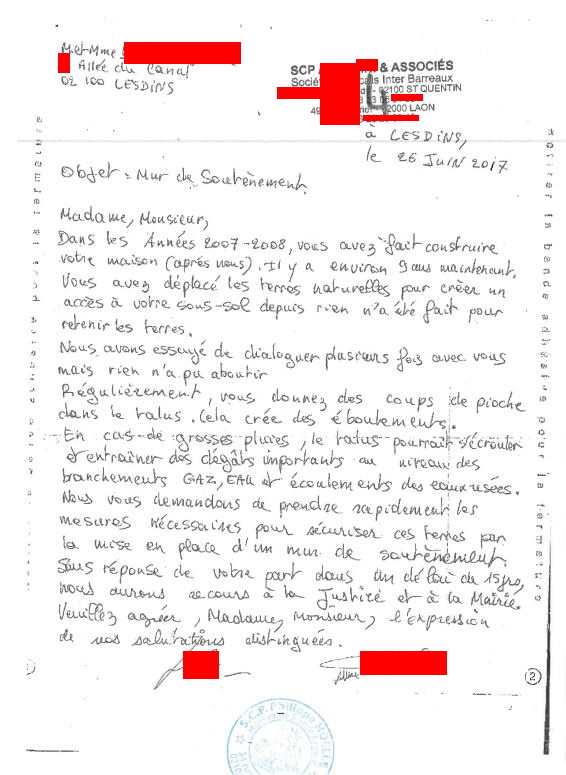 M. et Mme
Allée du Canal
02 100 LESDINS
SCP & ASSOCIÉS
Inter Barreaux
02100 ST QUENTIN
LAON
à LESDINS,
le 26 JUIN 2017
Objet : Mur de Soutènement.
Madame, Monsieur,
Dans les Années 2007-2008, vous avez fait construire
votre maison (après nous). Il y a environ 9 ans maintenant,
Vous avez déplacé les terres naturelles pour créer un
accès à votre sous-sol depuis rien n'a été fait pour
retenir les terres.
Nous avons essayé de dialoguer plusieurs fois avec vous
mais rien n'a pu aboutir
Régulièrement, vous donnez des coups de pioche
dans le talus. Cela crée des éboulements.
En cas de grosses pluies, le talus pourrait s'écrouler
et entraîner des dégâts importants au niveau des
branchements GAZ, EAU et écoulements des eaux usées.
Nous vous demandons de prendre rapidement les
mesures nécessaires pour sécuriser ces terres par
la mise en place d'un mur de soutènement.
Sans réponse de votre part dans un délai de 15 jrs,
nous aurons recours à la Justice et à la Mairie.
Veuillez agréer, Madame, Monsieur, l'expression
de nos salutations distinguées.
2
S.C.P. Philippe